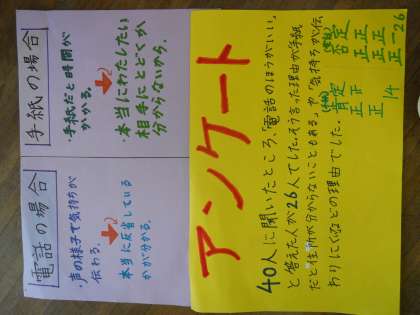 手紙の場合
・手紙だと時間が
かかる。
・本当にわたしたい
相手にとどくか
分からないから。
電話の場合
・声の様子で気持ちが
伝わる。
本当に反省している
かが分かる。
アンケート
40人に聞いたところ、「電話のほうがいい。」
と答えた人が26人でした。そう言った理由が手紙
だと住所が分からないこともある。や「気持ちが伝
わりにくいなどの理由でした。
否定
26
肯定
14